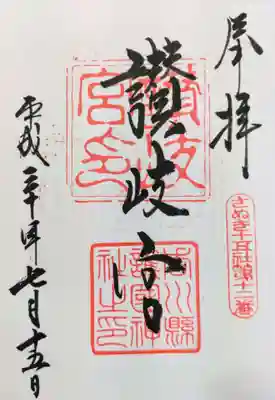 奉拝
さぬき十五社第十二番
讃岐宮
讃岐宮印
香川縣護國神社之印
平成二十年七月十五日